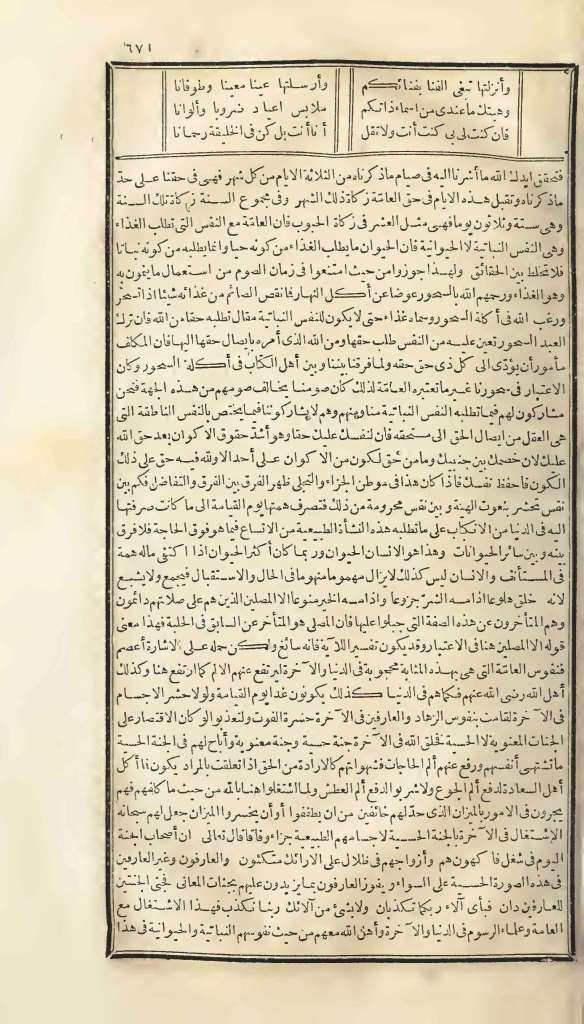 ٦٧١
وأنزلتها تبغى الفنا بفنائكم وأرسلتها عينا معينا وطوفانا
وهبتك ما عندى من اسماء ذاتكم ملابس اعياد ضروبا وألوانا
فان كنت لى بى كنت أنت ولا تقل أنا أنت بل كن فى الخليقة رحمانا
فتحقق ايدك الله ما أشرنا اليه فى صيام ماذكرناه من الثلاثة الايام من كل شهر فهى فى حقنا على حد
ماذكرناه وتقبل هذه الايام فى حق العامة زكاة ذلك الشهر وفى مجموع السنة زكاة تلك السنة
وهى ستة وثلاثون يوما فهى مثل العشر فى زكاة الحبوب فان العامة مع النفس التى تطلب الغذاء
وهى النفس النباتية لا الحيوانية فان الحيوان ما يطلب الغذاء من كونه حيا وانما يطلبه من كونه نباتا
فلا تخلط بين الحقائق ولهذا جوزوا من حيث امتنعوا فى زمان الصوم من استعمال ما ينمون به
وهو الغذاء ورحمهم الله بالسحور عوضا عن أكل النهار فما نقص الصائم من غذائه شيئا اذا تسحر
ورغب الله فى أكلة السحور وسماه غذاء حتى لا يكون للنفس النباتية مقال تطلبه حقا من الله فان ترك
العبد السحور تعين عليه من النفس طلب حقها ومن الله الذى أمره بايصال حقها اليها فان المكلف
مأمور أن يؤدى الى كل ذى حق حقه ولما فرقنا بيننا وبين أهل الكتاب فى أكلة السحور وكان
الاعتبار فى سحورنا غير ما تعتبره العامة لذلك كان صومنا يخالف صومهم من هذه الجهة فنحن
مشاركون لهم فيما تطلبه النفس النباتية منا ومنهم وهم لا يشاركوننا فيما يختص بالنفس الناطقة التى
هى العقل من ايصال الحق الى مستحقه فان لنفسك عليك حقا وهو أشد حقوق الاكوان بعد حق الله
عليك لان خصمك بين جنبيك وما من حق لكون من الاكوان على أحد الا ولله فيه حق على ذلك
الكون فاحفظ نفسك فاذا كان هذا فى موطن الجزاء والتجلى ظهر الفرق بين الفرق والتفاضل فكم بين
نفس تحشر بنعوت الهية وبين نفس محرومة من ذلك فتصرف همتها يوم القيامة الى ما كانت صرفتها
اليه فى الدنيا من الانكباب على ما تطلبه هذه النشأة الطبيعية من الاتساع فيما هو فوق الحاجة فلا فرق
بينه وبين سائر الحيوانات وهذا هو الانسان الحيوان وربما كان أكثر الحيوان اذا اكتفى ماله همة
فى المستأنف والانسان ليس كذلك لا يزال مهموما منهوما فى الحال والاستقبال فيجمع ولا يشبع
لانه خلق هلوعا اذا مسه الشر جزوعا واذا مسه الخير منوعا الا المصلين الذين هم على صلاتهم دائمون
وهم المتأخرون عن هذه الصفة التى جبلوا عليها فان المصلى هو المتأخر عن السابق فى الحلبة فهذا معنى
قوله الا المصلين هنا فى الاعتبار وقد يكون تفسيرا للآية فانه سائغ ولكن حمله على الاشارة أعصم
فنفوس العامة التى هى بهذه المثابة محجوبة فى الدنيا والآخرة لم يرتفع عنهم الالم كما ارتفع هنا وكذلك
أهل الله رضى الله عنهم فكما هم فى الدنيا كذلك يكونون غدا يوم القيامة ولولا حشر الاجسام
فى الآخرة لقامت بنفوس الزهاد والعارفين فى الآخرة حسرة الفوت ولتعذبوا لو كان الاقتصار على
الجنات المعنوية لا الحسية فخلق الله فى الآخرة جنة حسية وجنة معنوية وأباح لهم فى الجنة الحسية
ما تشتهى أنفسهم ورفع عنهم ألم الحاجات فشهواتهم كالارادة من الحق اذا تعلقت بالمراد يكون فما أكل
أهل السعادة لدفع ألم الجوع ولا شربوا لدفع ألم العطش ولما اشتغلوا هنا بالله من حيث ما كلفهم فهم
يجرون فى الامور بالميزان الذى حد لهم خائفين من ان يطففوا أو أن يخسروا الميزان جعل لهم سبحانه
الاشتغال فى الآخرة بالجنة الحسية لاجسامهم الطبيعية جزاء وفاقا قال تعالى ان أصحاب الجنة
اليوم فى شغل فاكهون هم وأزواجهم فى ظلال على الارائك متكئون والعارفون وغير العارفين
فى هذه الصورة الحسية على السواء ويفوز العارفون بما يزيدون عليهم بجنات المعانى فجنى الجنتين
للعارفين دان فبأى آلاء ربكما تكذبان ولا بشئ من آلائك ربنا نكذب فهذا الاشتغال مع
العامة وعلماء الرسوم فى الدنيا والآخرة وأهل الله معهم من حيث نفوسهم النباتية والحيوانية فى هذا